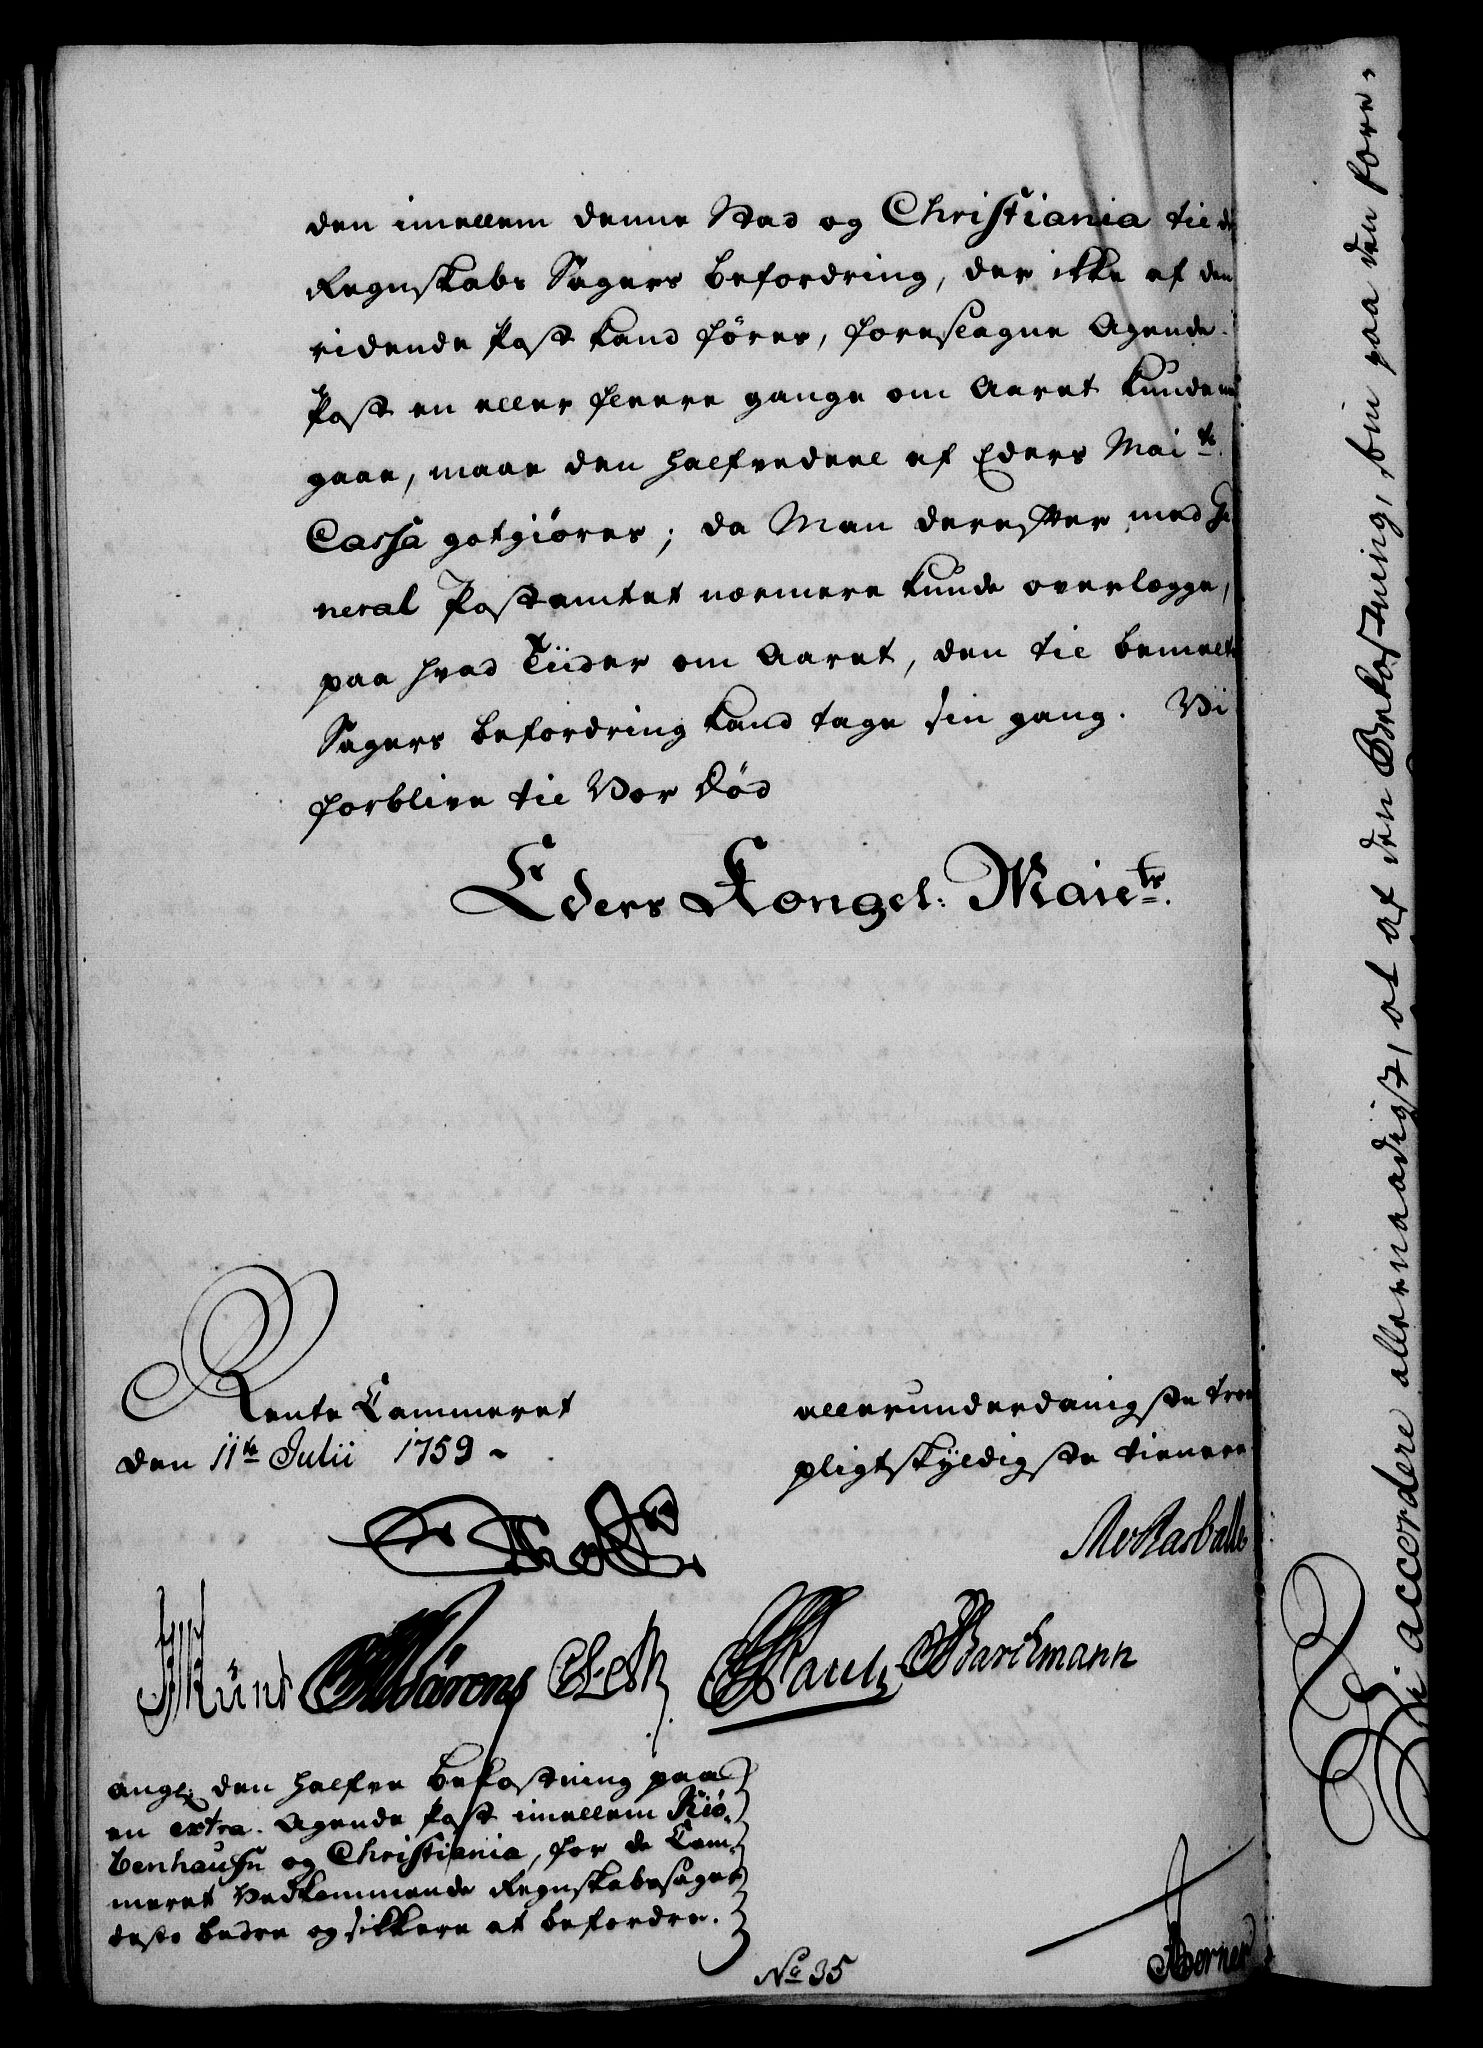 den imellem denne Stad og Christiania til de
Regnskabs Sagers befordring, der ikke af den
ridende Post kand føres, foreslagne Agende
Post en eller fleere gange om Aaret kunde
gaae, maae den halfvedeel af Eders Mai<sup>ts</sup>
Cassa gotgiøres; da Man derefter med Ge
neral Postamtet nærmere kunde overlægge,
paa hvad Tiider om Aaret, den til bemelte
Sagers befordring kand tage sin gang. Vi
forblive til Vor Død
Eders Kongel: Maie<sup>ts</sup>.
Rente Cammeret
den 11<sup>te</sup> Julii 1759
allerunderdanigste troe
pligtskyldigste tienere
Barchmann
angl: den halfve bekostning paa
en extra. Agende Post imellem Kiø-
benhaufn og Christiania, for de Cam-
meret Vedkommende Regnskabssager
desto bedre og sikkere at befordre.
N<sup>o</sup> 35
Vi accordere allernaadigst, at af den Bekostning, som paa den fore-